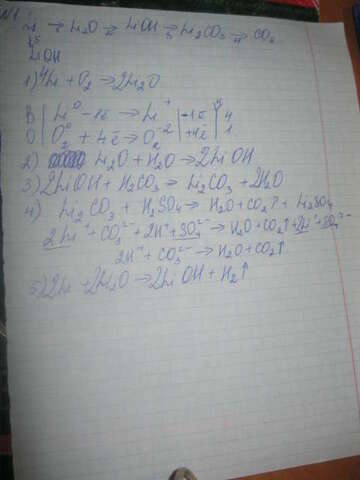 №1
Li → Li₂O → LiOH → Li₂CO₃ → CO₂
↓5
LiOH
1) 4Li + O₂ → 2Li₂O
В | Li⁰ - 1ē → Li⁺ | -1ē | 4
О | O₂⁰ + 4ē → O₂⁻² | +4ē | 1
2) Li₂O + H₂O → 2LiOH
3) 2LiOH + H₂CO₃ → Li₂CO₃ + 2H₂O
4) Li₂CO₃ + H₂SO₄ → H₂O + CO₂↑ + Li₂SO₄
2Li⁺ + CO₃²⁻ + 2H⁺ + SO₄²⁻ → H₂O + CO₂↑ + 2Li⁺ + SO₄²⁻
2H⁺ + CO₃²⁻ → H₂O + CO₂↑
5) 2Li + 2H₂O → 2LiOH + H₂↑